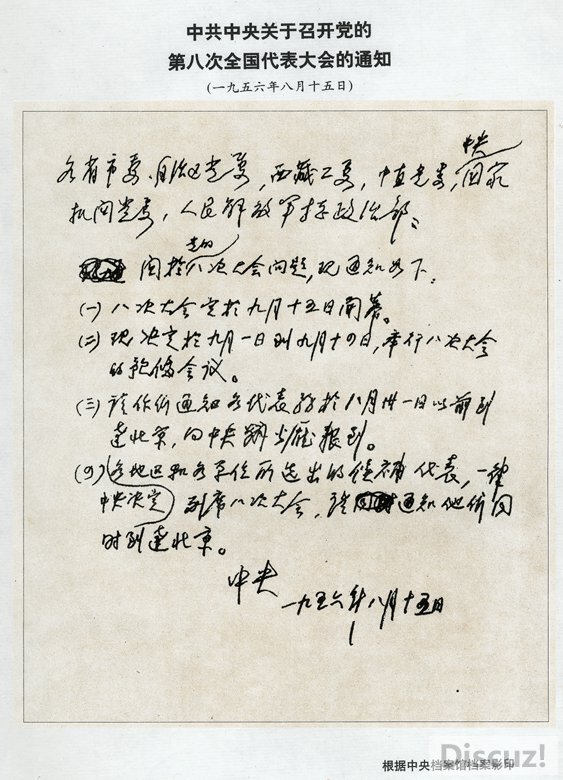 中共中央关于召开党的
第八次全国代表大会的通知
(一九五六年八月十五日)
中央
各省市委、自治区党委，西藏工委，中直党委，国家
机关党委，人民解放军总政治部：
党的
关於八次大会问题，现通知如下：
(一) 八次大会定於九月十五日开幕。
(二) 现决定於九月一日到九月十四日，举行八次大会
的预备会议。
(三) 请你们通知各代表务於八月卅一日以前到
达北京，向中央办公厅报到。
(四) 各地区和各单位所选出的候补代表，一律
中央决定 列席八次大会，请通知他们同
时到达北京。
中央
一九五六年八月十五日
根据中央档案馆档案影印
Discuz!